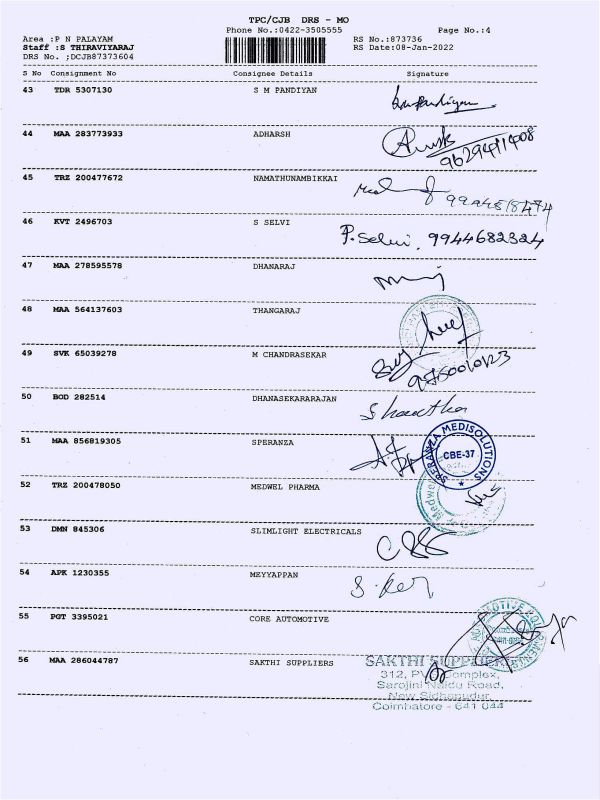 TPC/CJB DRS - MO
Phone No.:0422-3505555 Page No.:4
Area :P N PALAYAM RS No.:873736
Staff :S THIRAVIYARAJ RS Date:08-Jan-2022
DRS No. ;DCJB87373604
S No Consignment No Consignee Details Signature
43 TDR 5307130 S M PANDIYAN
44 MAA 283773933 ADHARSH
9629411408
45 TRZ 200477672 NAMATHUNAMBIKKAI
46 KVT 2496703 S SELVI P. Selvi, 9944682324
47 MAA 278595578 DHANARAJ
48 MAA 564137603 THANGARAJ
49 SVK 65039278 M CHANDRASEKAR
50 BOD 282514 DHANASEKARARAJAN Shantha
51 MAA 856819305 SPERANZA
SPERANZA MEDISOLUTIONS
CBE-37
52 TRZ 200478050 MEDWEL PHARMA
Medwel
53 DMN 845306 SLIMLIGHT ELECTRICALS
54 APK 1230355 MEYYAPPAN
55 PGT 3395021 CORE AUTOMOTIVE
56 MAA 286044787 SAKTHI SUPPLIERS
SAKTHI SUPPLIERS
312, Complex,
Sarojini Naidu Road,
New Sidhapudur,
Coimbatore - 641 044